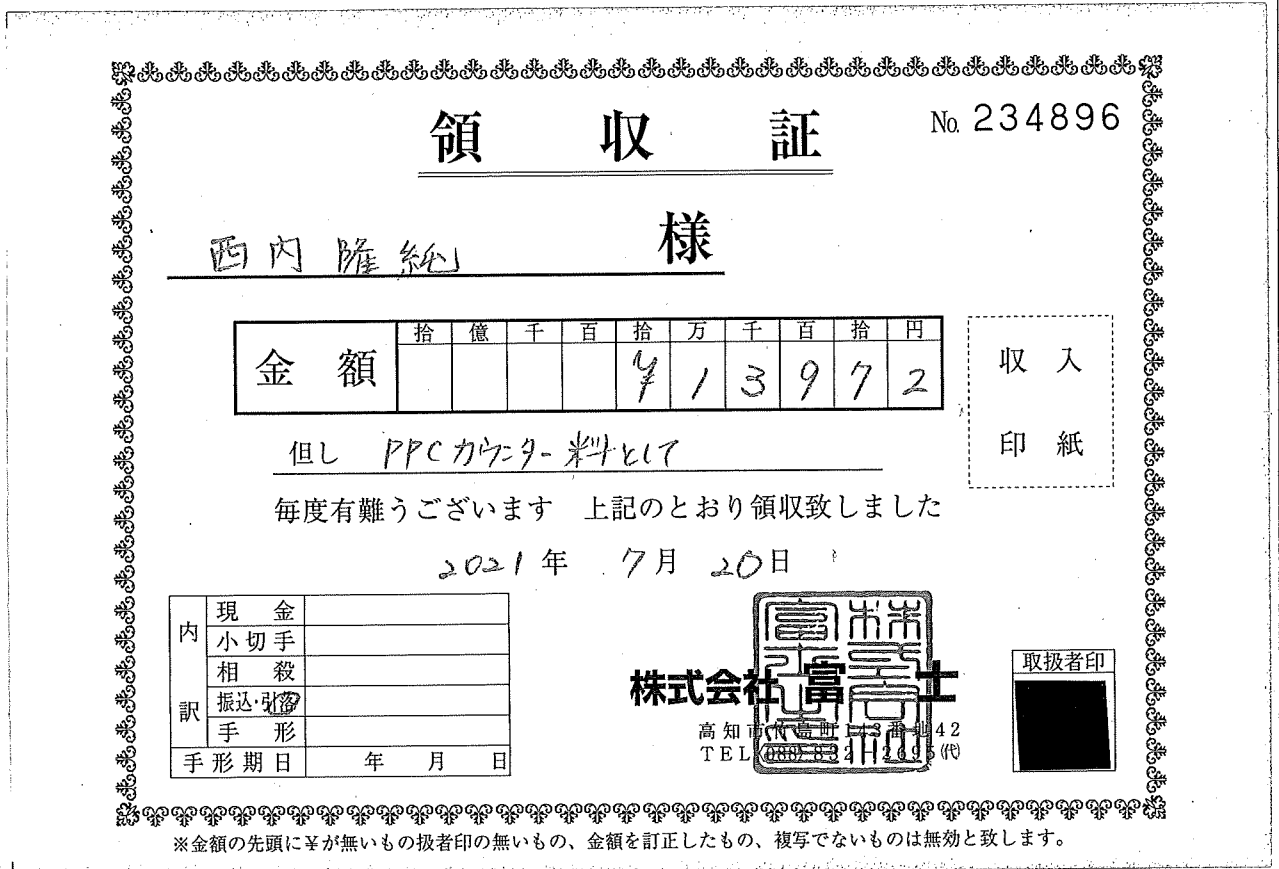 領収証
No. 234896
西内隆純 様
金額
拾 億 千 百 拾 万 千 百 拾 円
¥ 1 3 9 7 2
収入
印紙
但し PPCカウンター料として
毎度有難うございます 上記のとおり領収致しました
2021年 7月 20日
内訳
現金
小切手
相殺
振込・引落
手形
手形期日 年 月 日
株式会社 富士
高知市竹島町143番地42
TEL(088) 832-2695(代)
取扱者印
※金額の先頭に¥が無いもの扱者印の無いもの、金額を訂正したもの、複写でないものは無効と致します。